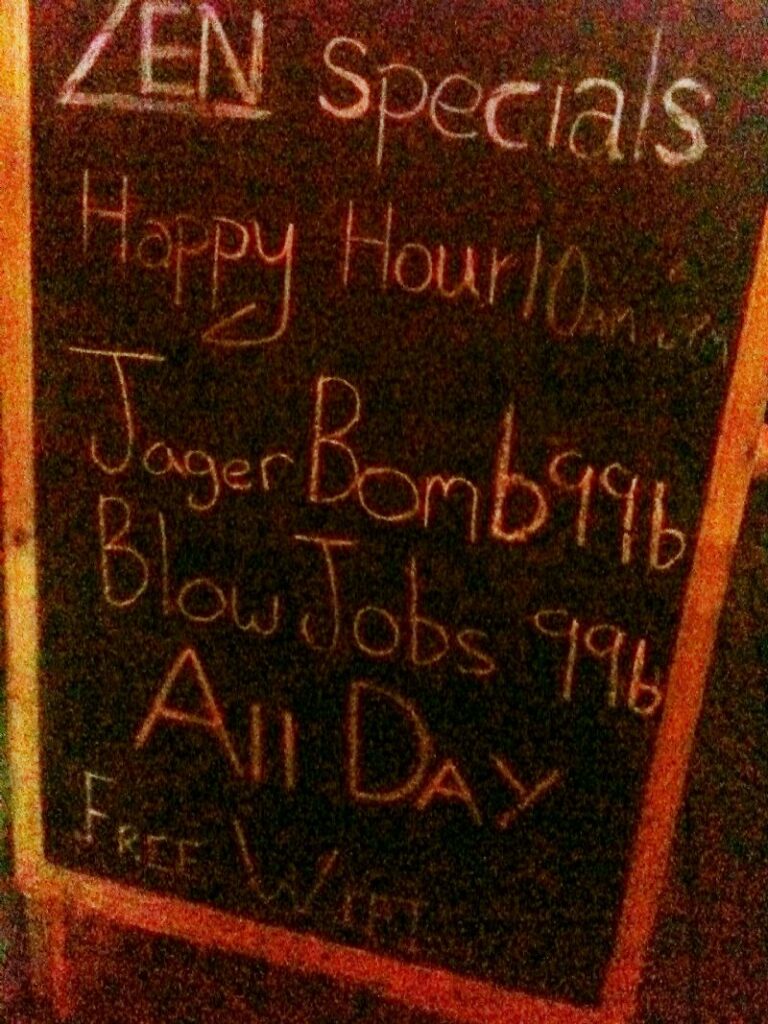 ZEN Specials
Happy Hour 10am
Jager Bomb 99b
Blow Jobs 99b
All Day
Free Wifi